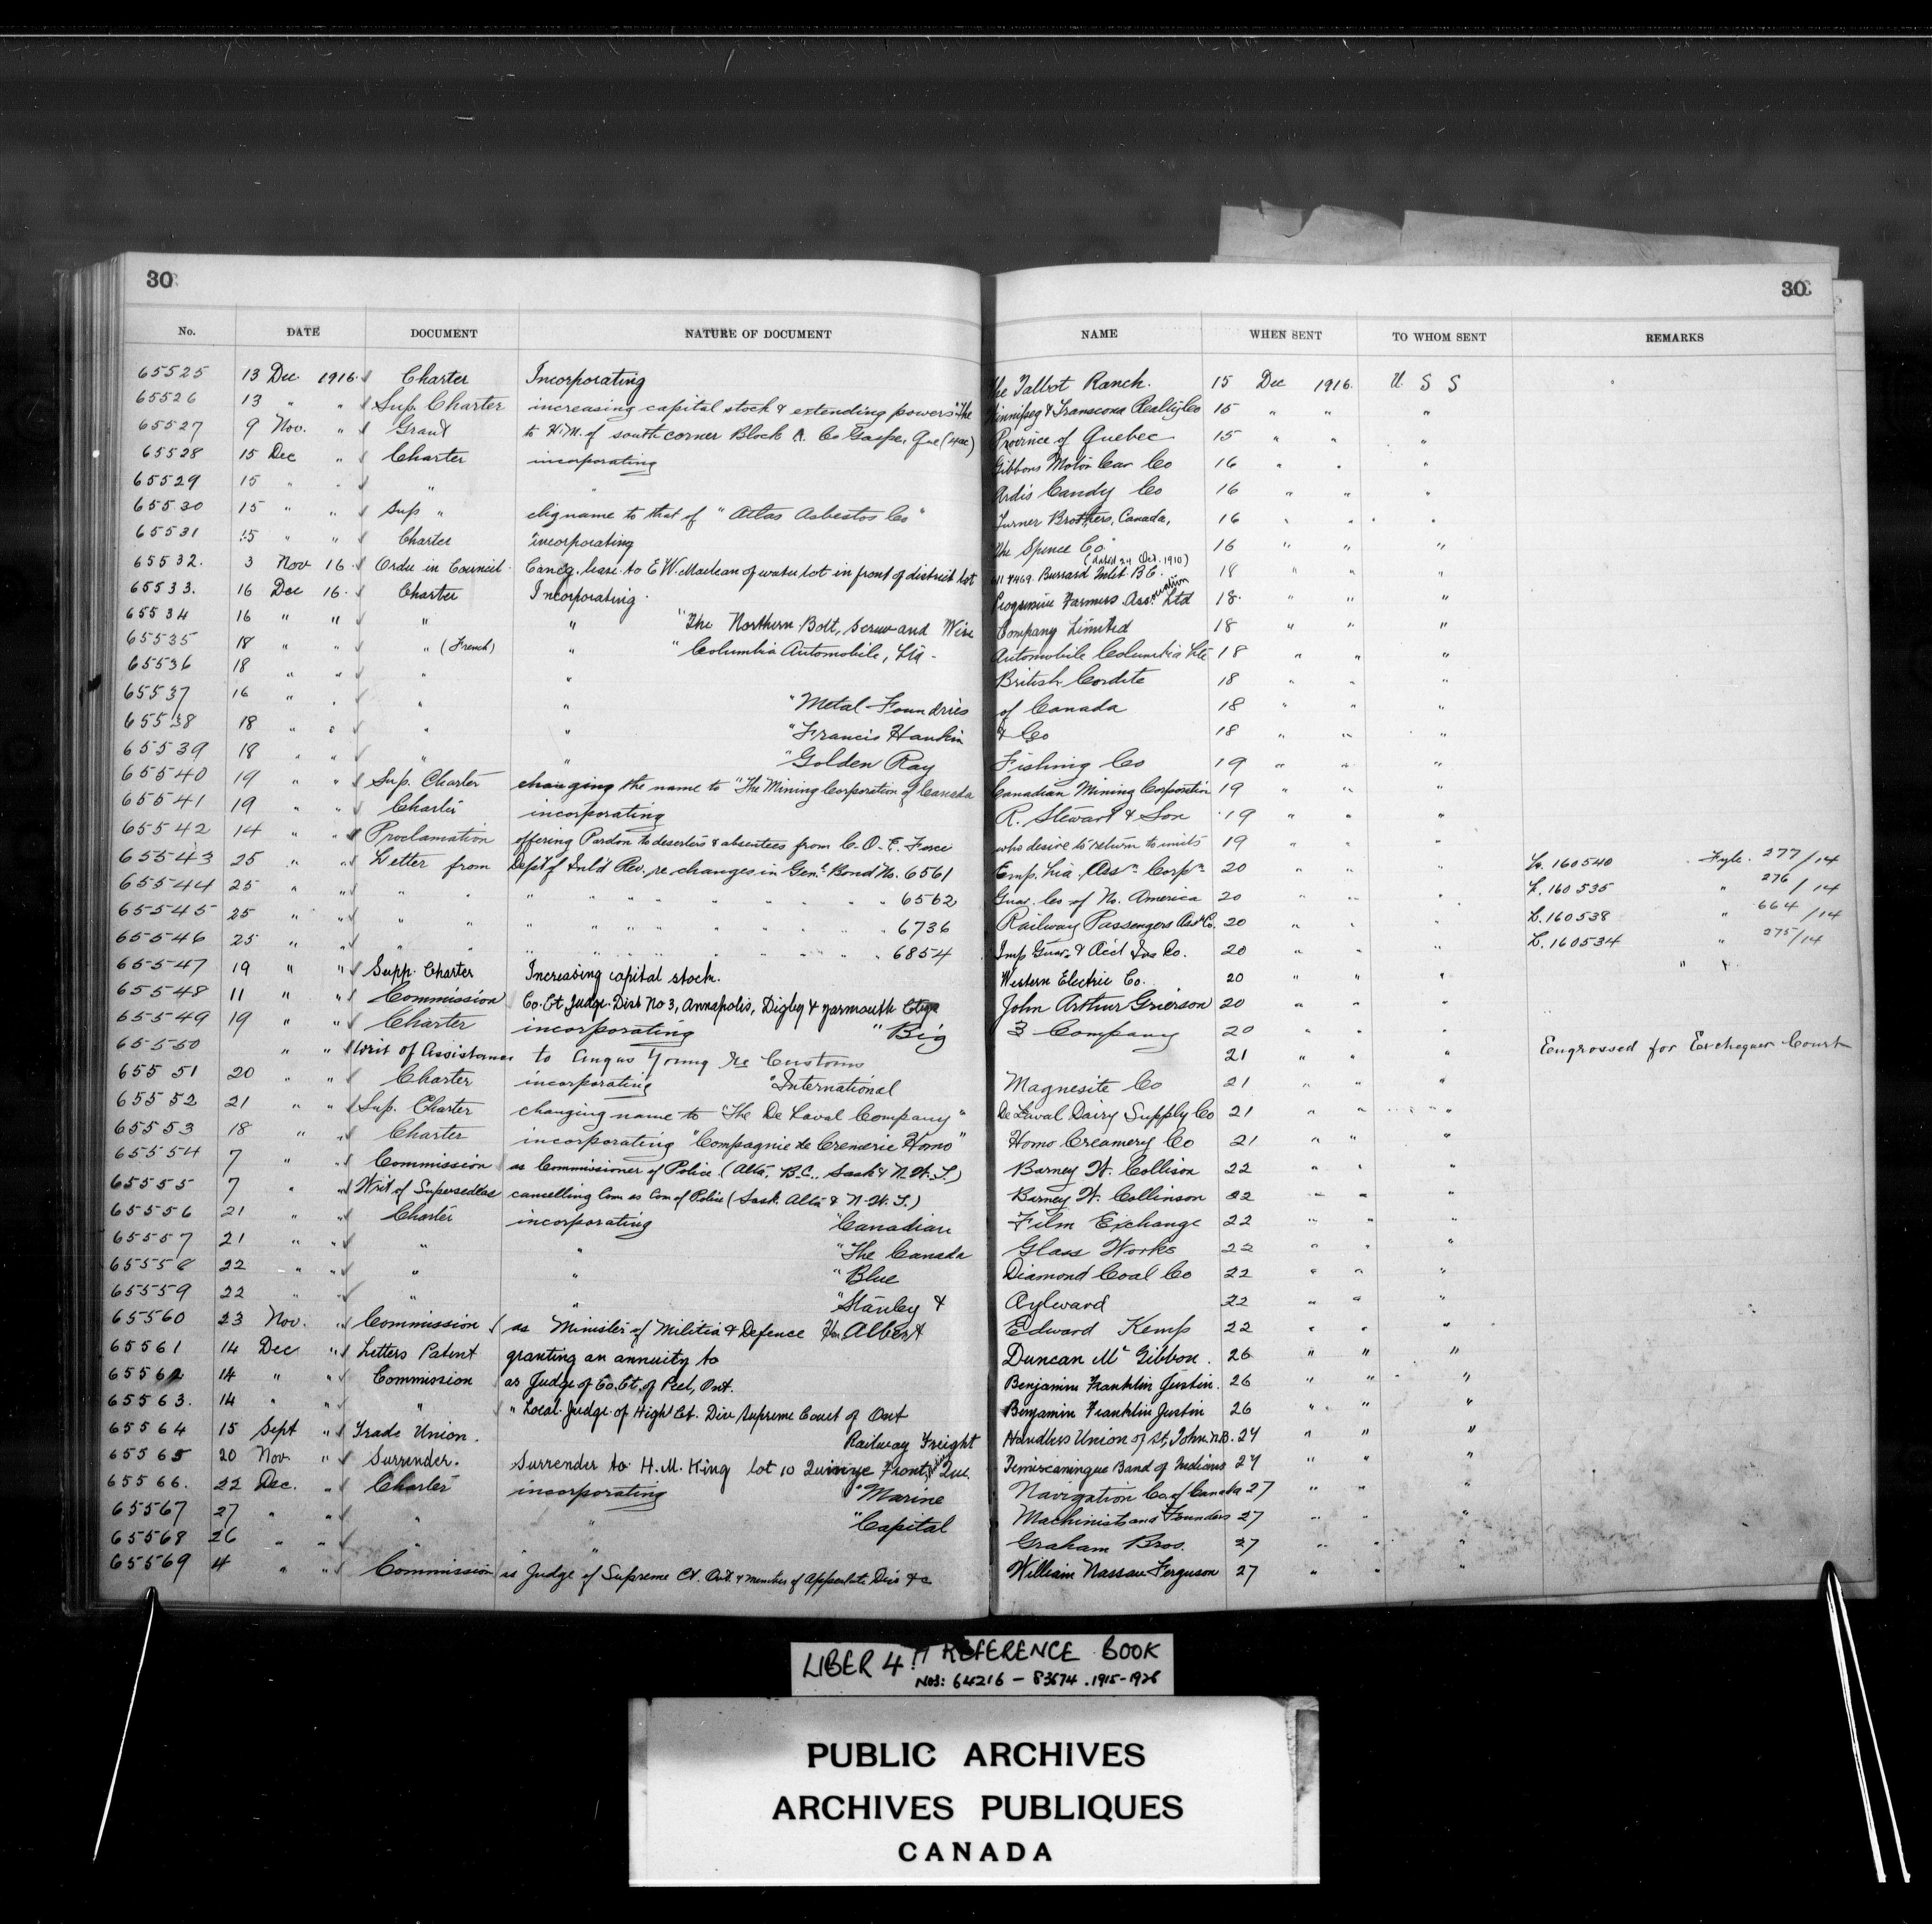 30
30
No. DATE DOCUMENT NATURE OF DOCUMENT NAME WHEN SENT TO WHOM SENT REMARKS
65525 13 Dec 1916 Charter Incorporating The Talbot Ranch. 15 Dec 1916. U S S
65526 13 " " Sup. Charter increasing capital stock & extending powers "The Winnipeg & Transcona Realty Co 15 " " "
65527 9 Nov. " Grant to H.M. of south corner Block A. Co Gaspe, Que (4ac) Province of Quebec 15 " " "
65528 15 Dec " Charter incorporating Gibbons Motor Car Co 16 " " "
65529 15 " " " " Ardis Candy Co 16 " " "
65530 15 " " Sup " chg name to that of "Atlas Asbestos Co" Turner Brothers, Canada, 16 " " "
65531 15 " " Charter incorporating The Spence Co. 16 " " "
65532. 3 Nov 16 Order in Council Cancg. lease to E W. Maclean of water lot in front of district lot 611 & 469. Burrard Inlet B.C. (dated 24 Oct. 1910) 18 " " "
65533. 16 Dec 16 Charter Incorporating. Progressive Farmers Ltd 18 " " "
65534 16 " " " " "The Northern Bolt, Screw and Wire Company Limited 18 " " "
65535 18 " " " (French) " "Columbia Automobile, Ltd. Automobile Columbia Ltée 18 " " "
65536 18 " " " " British Cordite 18 " " "
65537 16 " " " " "Metal Foundries of Canada 18 " " "
65538 18 " " " " "Francis Hankin & Co 18 " " "
65539 18 " " " " "Golden Ray Fishing Co 19 " " "
65540 19 " " Sup. Charter changing the name to "The Mining Corporation of Canada Canadian Mining Corporation 19 " " "
65541 19 " " Charter incorporating R. Stewart & Son 19 " " "
65542 14 " " Proclamation offering Pardon to deserters & absentees from C.O.E. Force who desire to return to units 19 " " "
65543 25 " " Letter from Dep't of Inl'd Rev. re changes in Genl. Bond No. 6561 Emp. Lia. Assn Corpn 20 " " " L. 160540 Fyle. 277/14
65544 25 " " " " " " " " 6562 Guar. Co of No. America 20 " " " L. 160535 " 276/14
65545 25 " " " " " " " " 6736 Railway Passengers Ass. Co. 20 " " " L. 160538 " 664/14
65546 25 " " " " " " " " 6854 Imp Guar. & Acid Ins Co. 20 " " " L. 160534 " 275/14
65547 19 " " Supp. Charter Increasing capital stock. Western Electric Co. 20 " " "
65548 11 " " Commission Co. Ct. Judge. Dist No 3, Annapolis, Digby & Yarmouth John Arthur Grierson 20 " " "
65549 19 " " Charter incorporating "Big 3 Company 20 " " "
65550 " " Writ of Assistance to Angus Young re Customs 21 " " " Engrossed for Exchequer Court
65551 20 " " Charter incorporating "International Magnesite Co 21 " " "
65552 21 " " Sup. Charter changing name to "The De Laval Company" De Laval Dairy Supply Co 21 " " "
65553 18 " " Charter incorporating "Compagnie de Cremerie Homo" Homo Creamery Co 21 " " "
65554 7 " " Commission as Commissioner of Police (Alta, B.C., Sask & N.W.T.) Barney W. Collison 22 " " "
65555 7 " " Writ of Supersedeas cancelling Com as Com of Police (Sask. Alta & N.W.T.) Barney W. Collinson 22 " " "
65556 21 " " Charter incorporating "Canadian Film Exchange 22 " " "
65557 21 " " " " "The Canada Glass Works 22 " " "
65558 22 " " " " "Blue Diamond Coal Co 22 " " "
65559 22 " " " " "Stanley & Aylward 22 " " "
65560 23 Nov. " Commission as Minister of Militia & Defence Hon Albert Edward Kemp 22 " " "
65561 14 Dec " Letters Patent granting an annuity to Duncan Mc Gibbon. 26 " " "
65562 14 " " Commission as Judge of Co. Ct. of Peel, Ont. Benjamin Franklin Justin. 26 " " "
65563. 14 " " " " Local Judge of High Ct. Div Supreme Court of Ont Benjamin Franklin Justin 26 " " "
65564 15 Sept " Trade Union. Railway Freight Handlers Union of St. John. N.B. 27 " " "
65565 20 Nov. " Surrender. Surrender to H.M. King lot 10 Quinze Front, Que. Temiscamingue Band of Indians 27 " " "
65566. 22 Dec. " Charter incorporating "Marine Navigation Co. of Canada 27 " " "
65567 27 " " " " "Capital Machinists and Founders 27 " " "
65568 26 " " " " Graham Bros. 27 " " "
65569 4 " " Commission as Judge of Supreme Ct. Ont. & member of Appellate Div &c William Nassau Ferguson 27 " " "
LIBER 4 REFERENCE BOOK
NOS: 64216 – 83674 . 1915-1926
PUBLIC ARCHIVES
ARCHIVES PUBLIQUES
CANADA